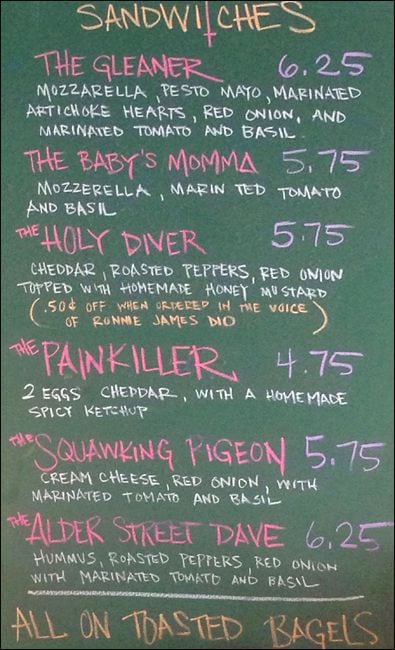 SANDWITCHES
THE GLEANER 6.25
MOZZARELLA, PESTO MAYO, MARINATED
ARTICHOKE HEARTS, RED ONION, AND
MARINATED TOMATO AND BASIL.
THE BABY'S MOMMA 5.75
MOZZERELLA, MARIN TED TOMATO
AND BASIL
THE HOLY DIVER 5.75
CHEDDAR, ROASTED PEPPERS, RED ONION
TOPPED WITH HOMEMADE HONEY MUSTARD
(.50¢ OFF WHEN ORDERED IN THE VOICE
OF RONNIE JAMES DIO)
THE PAINKILLER 4.75
2 EGGS CHEDDAR, WITH A HOMEMADE
SPICY KETCHUP
THE SQUAWKING PIGEON 5.75
CREAM CHEESE, RED ONION, WITH
MARINATED TOMATO AND BASIL
THE ALDER STREET DAVE 6.25
HUMMUS, ROASTED PEPPERS, RED ONION
WITH MARINATED TOMATO AND BASIL
ALL ON TOASTED BAGELS